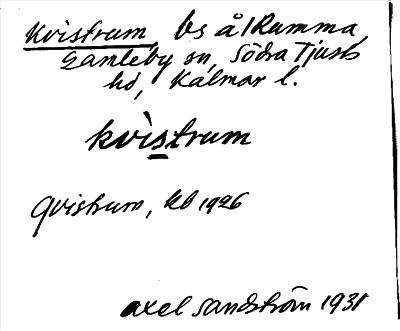 Kvistrum, bs å /Rumma,
Gamleby sn, Södra Tjusts
hd, Kalmar l.
kvìstrum
Qvistrum, kb 1926
axel sandström 1931